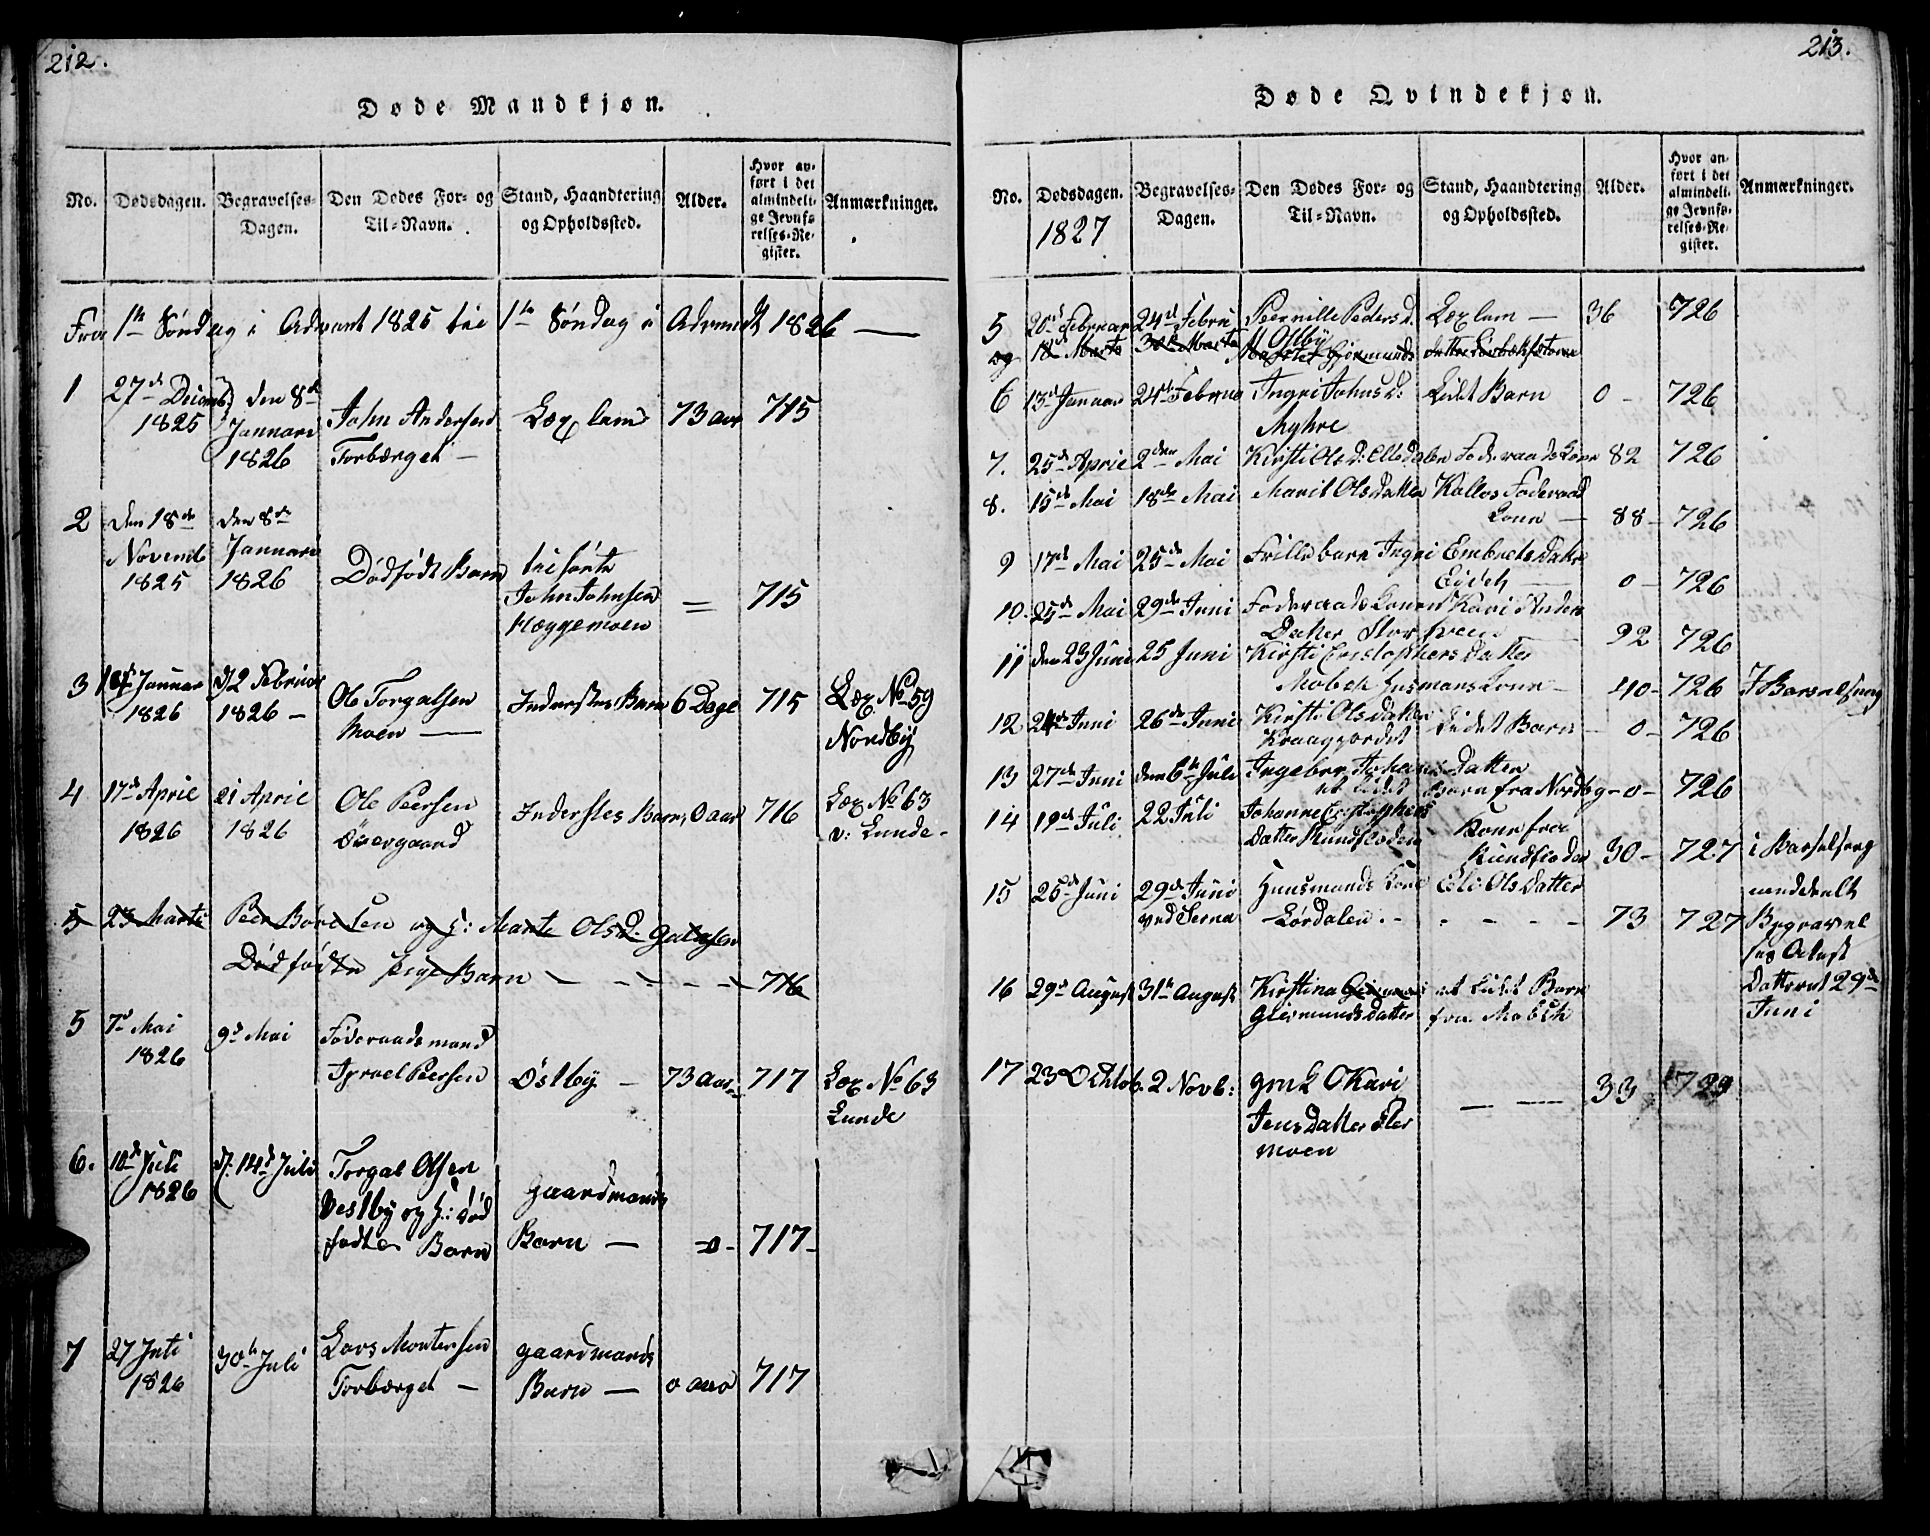 212.
Døde Mandkjøn.
No. Dødsdagen. Begravelses-Dagen. Den Dødes For- og Til-Navn. Stand, Haandtering og Opholdssted. Alder. Hvor anført i det almindelige Jevnførelses-Register. Anmærkninger.
Fra 1te Søndag i Advent 1825 til 1te Søndag i Advendt 1826 —
1 27de Decemb. 1825 den 8de Januari 1826 John Andersen Torberget — 73 aar 715
2 den 18de Novemb 1825 den 8de Januari 1826 Dødfødt Barn John Johnsen Hæggemoen = 715
3 Januar 1826 d. 2 Februar 1826 — Ole Torgalsen Moen — Inderstes Barn 6 Dage 715 No 59 Nordby
4 17de April 1826 21 April 1826 Ole Peersen Øvergaard Inderstes Barn, 0 aar 716 No 63 v: Lunde-
5 23 Marti Peer Børesen og H: Marte Olsd. Galaasen
Dødfødte Pige Barn — 716
5 7d Mai 1826 9d Mai Føderaadsmand Israel Peersen Østby — 73 Aar 717 No 63 Lunde
6. 10d Juli 1826 d. 14d Juli Torgal Olsen Vestby og H: død fødte Barn Gaardmands Barn — 0 - 717-
7 27 Juli 1826 30te Juli Lars Mortensen Torberget — gaardmands Barn — 0 aar 717
213.
Døde Qvindekjøn.
No. Dødsdagen. 1827 Begravelses-Dagen. Den Dødes For- og Til-Navn. Stand, Haandtering og Opholdssted. Alder. Hvor anført i det almindelige Jevnførelses-Register. Anmærkninger.
5 20d Februar 24d Febru Pernille Pedersd. Østby — 36 726
og 18 Marts 30te Marts
6 13d Januar 24de Februa Ingri Johnsd: Myhre Lidet Barn 0 - 726
7. 25de April 2den Mai Kirsti Olsd: Føderaads Kone 82 726
8. 15de Mai 18de Mai Marit Olsdatter Kollos Føderaad Kone — 88 - 726
9 17de Mai 25de Mai Frillebarn Ingri Embretsdatter — 0 - 726
10. 25de Mai 29de Juni Føderaads Konen Kari Anders Datter — 92 726
11 den 23 Juni 25 Juni Kirsti Cristophers Datter Husmans Kone — 40 - 726 I Barselseng
12 24de Juni 26de Juni Kirsti Olsdatter Kraagjordet Lidet Barn — 0 - 726
13 27de Juni den 6te Juli Ingebor Johans Datter et lidet Barn fra Nordby - 0 - 726
14 19de Juli 22 Juli Johanne Cristophers Datter Rundfloden Kone fra Rundfloden 30 - 727 i Barselseng
15 25de Juni 29de Juni ved Perna Huusmands Kone Eli Olsdatter Lørdalen - - - - 73 727
Begravelses Datteret 29de Juni
16 29d August 31te August Kirstina Giermundsdatter et Lidet Barn fra
17 23 Octob. 2 Novb: gmk O Kari Jensdatter Flermoen — 33 729